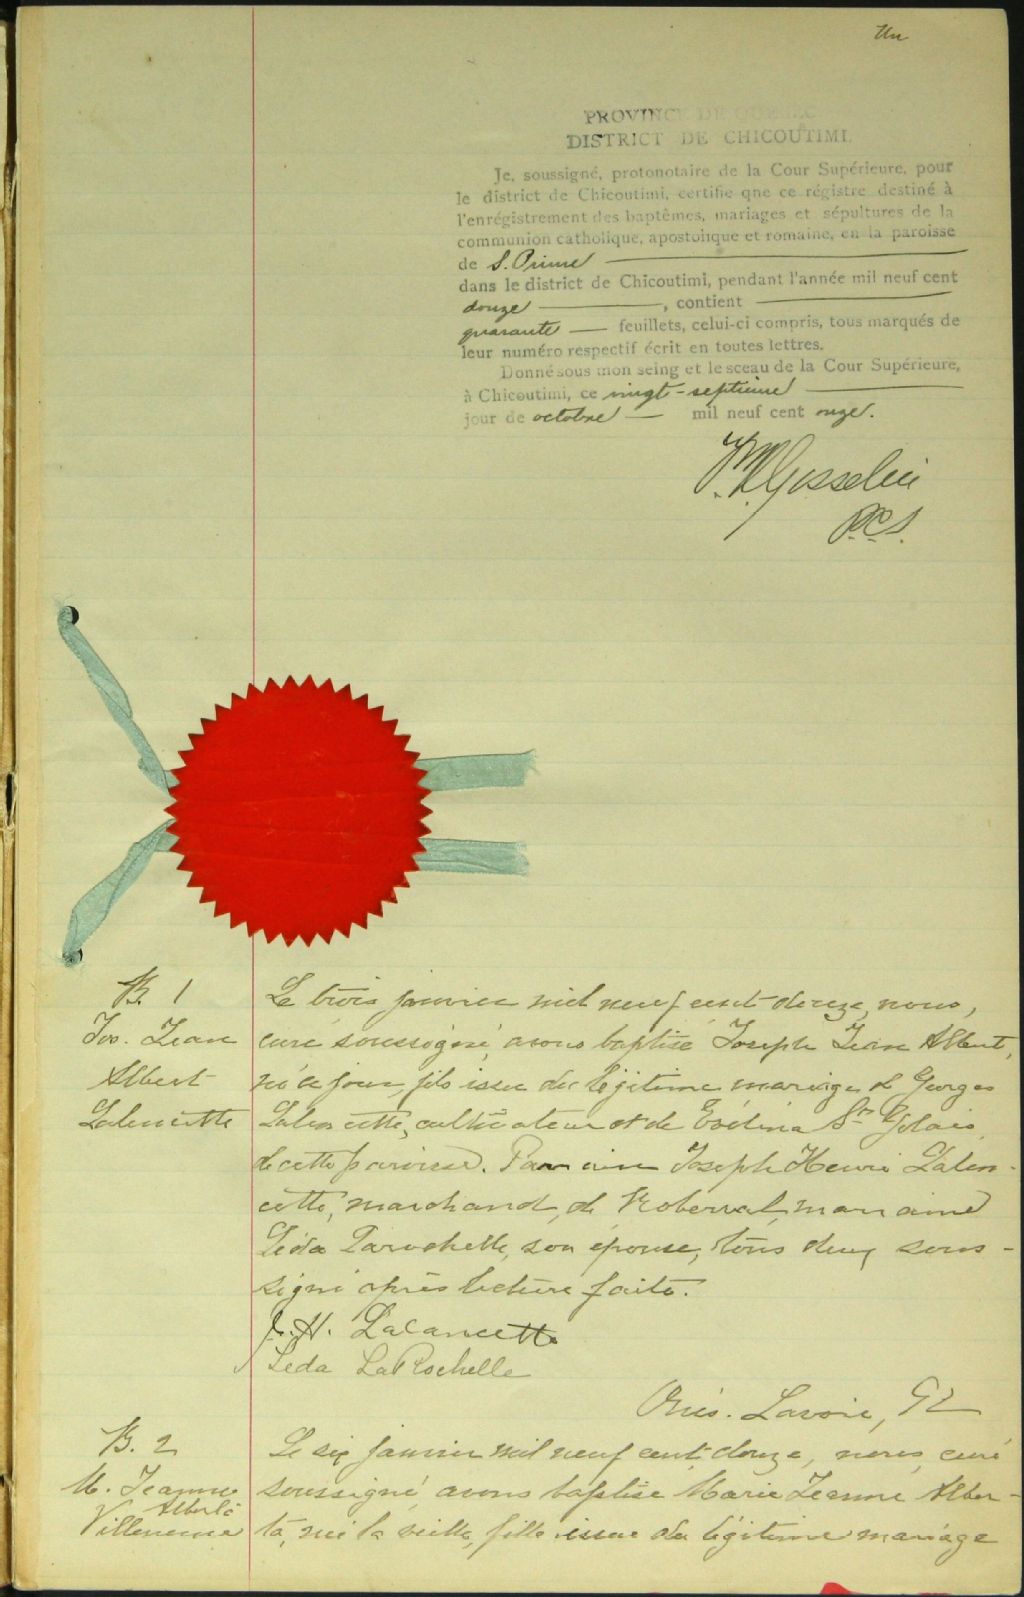 Un
PROVINCE DE QUEBEC
DISTRICT DE CHICOUTIMI.
Je, soussigné, protonotaire de la Cour Supérieure, pour
le district de Chicoutimi, certifie que ce régistre destiné à
l'enrégistrement des baptêmes, mariages et sépultures de la
communion catholique, apostolique et romaine, en la paroisse
de S. Prime
dans le district de Chicoutimi, pendant l'année mil neuf cent
douze, contient
quarante feuillets, celui-ci compris, tous marqués de
leur numéro respectif écrit en toutes lettres.
Donné sous mon seing et le sceau de la Cour Supérieure,
à Chicoutimi, ce vingt-septieme
jour de octobre mil neuf cent onze.
Gosselin
P.C.S.
B. 1
Jos. Jean
Albert
Lalancette
Le trois janvier mil neuf cent douze, nous,
curé soussigné, avons baptisé Joseph Jean Albert,
né ce jour, fils issu du légitime mariage de Georges
Lalancette, cultivateur et de Evélina St Gelais
de cette paroisse. Parrain Joseph Henri Lalan-
cette, marchand, de Roberval, marraine
Léda Larochelle, son épouse, tous deux sous-
signé après lecture faite.
J. H. Lalancette
Leda LaRochelle
Onés. Lavoie,
B. 2
M. Jeanne
Alberta
Villeneuve
Le six janvier mil neuf cent douze, nous, curé
soussigné, avons baptisé Marie Jeanne Alber-
ta, née la veille, fille issue du légitime mariage